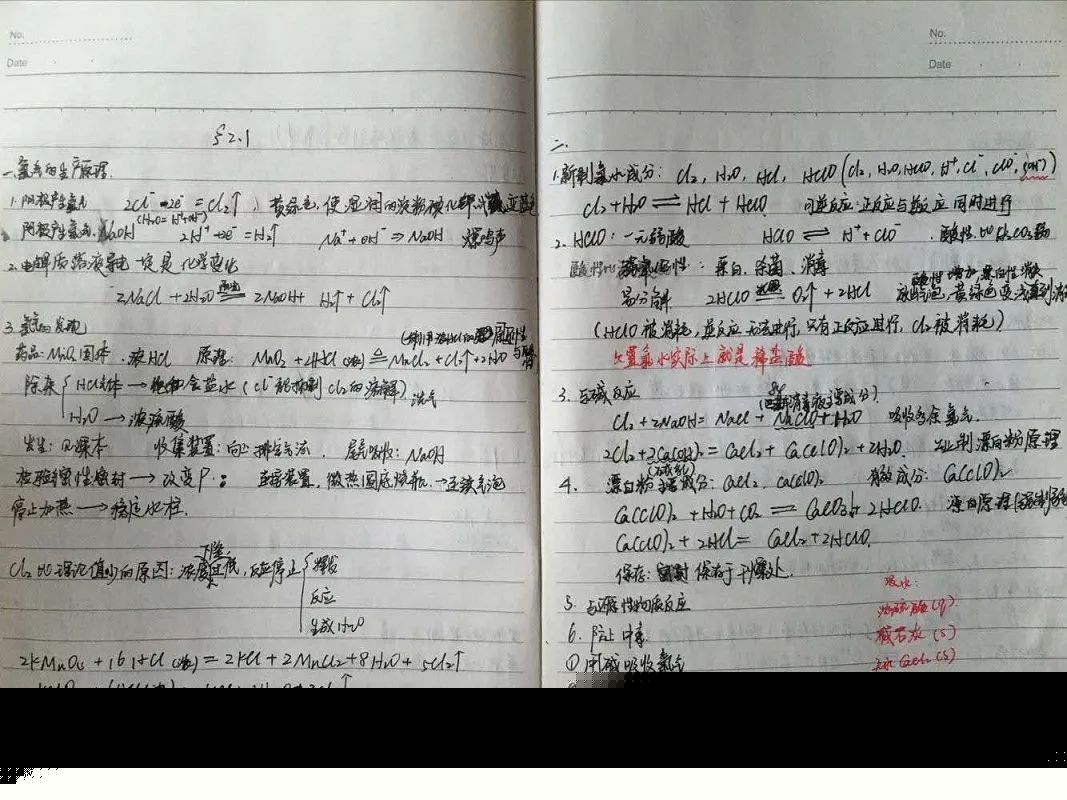 No.
Date
§2.1
一.氯气的生产原理.
1.阳极产氯气 2Cl⁻-2e⁻=Cl₂↑, 黄绿色, 使湿润的淀粉碘化钾试纸变蓝色
(H₂O=H⁺+OH⁻)
阴极产氢气, NaOH 2H⁺+2e⁻=H₂↑ Na⁺+OH⁻⇒NaOH 爆鸣声
2.电解质溶液导电一定是化学变化
2NaCl+2H₂O 通电 2NaOH+H₂↑+Cl₂↑
3.氯气的发现
药品:MnO₂固体.浓HCl 原理: MnO₂+4HCl(浓)≜MnCl₂+Cl₂↑+2H₂O
除杂 HCl气体→饱和食盐水(Cl⁻能抑制Cl₂的溶解) 洗气
H₂O→浓硫酸
发生:见课本 收集装置:向上排空气法, 尾气吸收:NaOH
检验密性密封→改变P: 连接装置,微热圆底烧瓶→连续气泡
停止加热→稳定水柱.
下降
Cl₂比理论值少的原因:浓度过低,反应停止 挥发
反应
生成H₂O
2KMnO₄+16HCl(浓)=2KCl+2MnCl₂+8H₂O+5Cl₂↑
No.
Date
二.
1.新制氯水成分: Cl₂, H₂O, HCl, HClO(Cl₂,H₂O,HClO,H⁺,Cl⁻,ClO⁻,(OH⁻))
Cl₂+H₂O⇌HCl+HClO 可逆反应:正反应与逆反应同时进行
2.HClO:一元弱酸 HClO⇌H⁺+ClO⁻.酸性:比H₂CO₃弱
强氧化性:漂白.除菌.消毒
酸性增加漂白性消失
易分解 2HClO 光照 O₂↑+2HCl 黄绿色变浅直到消
(HClO被消耗,逆反应无法进行,只有正反应进行,Cl₂被消耗)
久置氯水实际上就是稀盐酸
3.与碱反应
消毒液主要成分)
Cl₂+2NaOH=NaCl+NaClO+H₂O 吸收多余氯气.
2Cl₂+2Ca(OH)₂=CaCl₂+Ca(ClO)₂+2H₂O. 工业制漂白粉原理
4.漂白粉主要成分:CaCl₂,Ca(ClO)₂ 有效成分:Ca(ClO)₂
Ca(ClO)₂+H₂O+CO₂=CaCO₃↓+2HClO. 漂白原理
Ca(ClO)₂+2HCl=CaCl₂+2HClO.
保存:密封保存于干燥处.
5.与还原性物质反应
6.防止中毒
①用碱吸收氯气
吸水:
浓硫酸(q)
碱石灰(s)
无水CaCl₂(s)